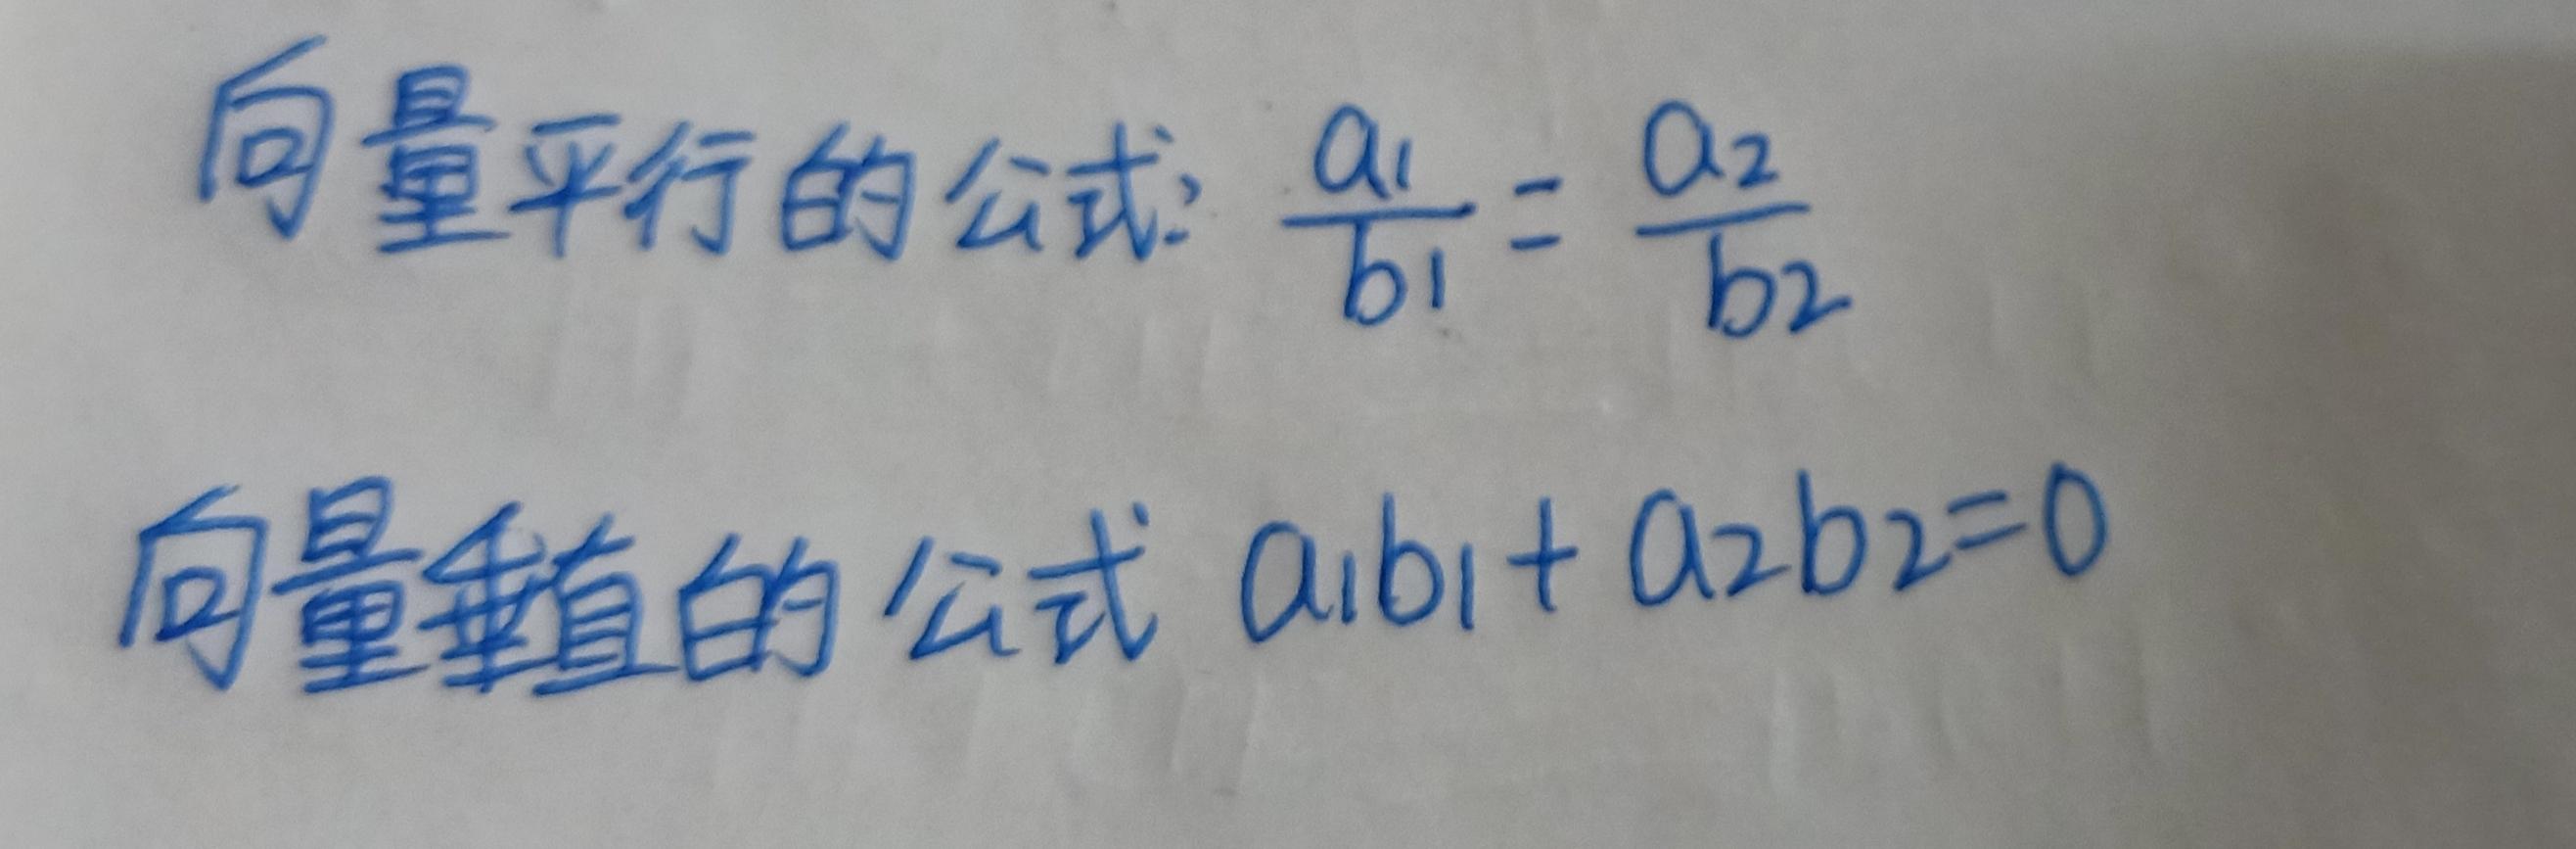 向量平行的公式: a1/b1 = a2/b2
向量垂直的公式 a1b1+a2b2=0